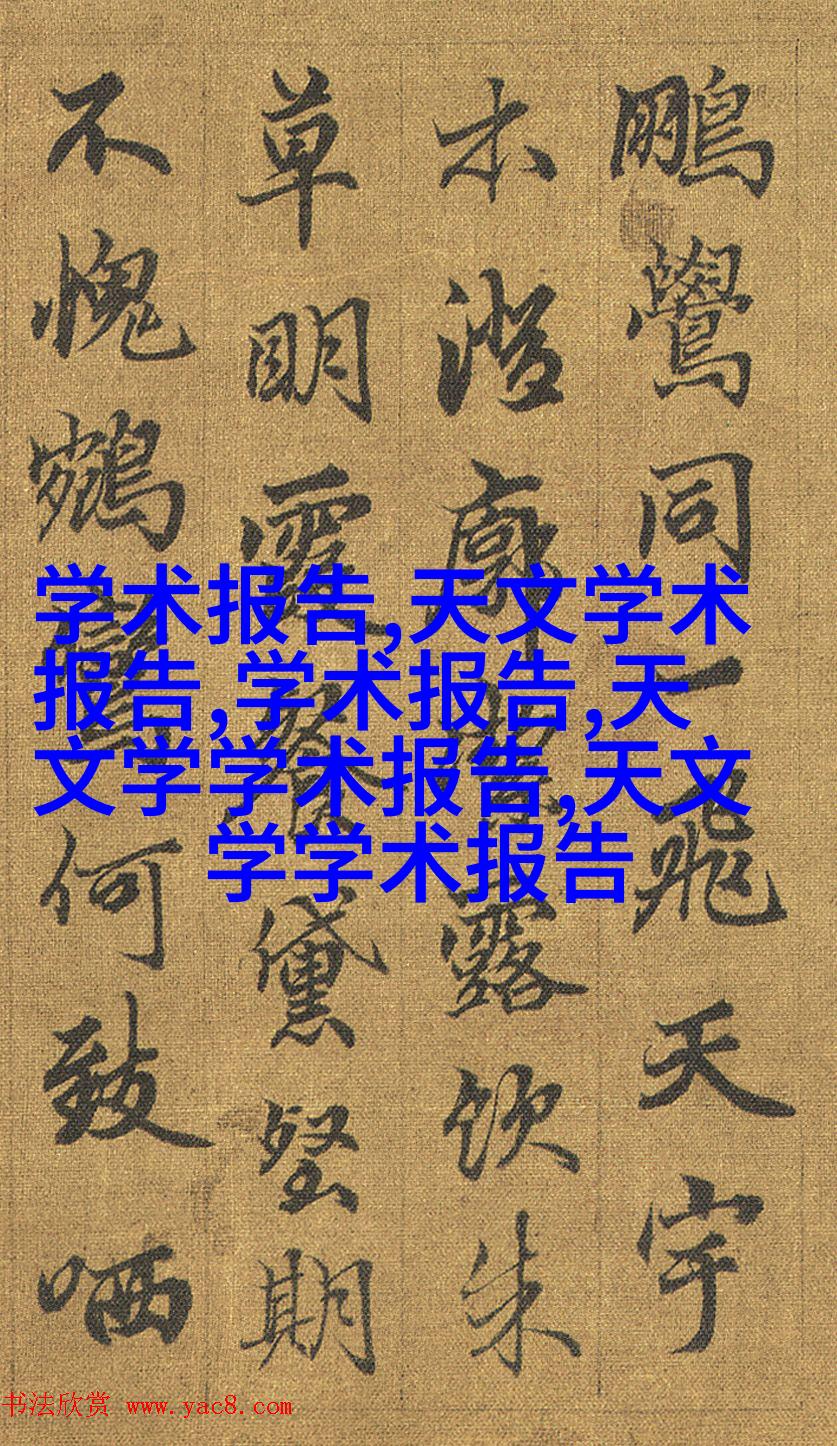 鵬鷽同一飛天宇
木澄廓露飲朱
草明霞餐黛堅期
不愧鶴何致哂
学术报告,天文学术
报告,学术报告,天
文学学术报告,天文
学学术报告
书法欣赏 www.yac8.com